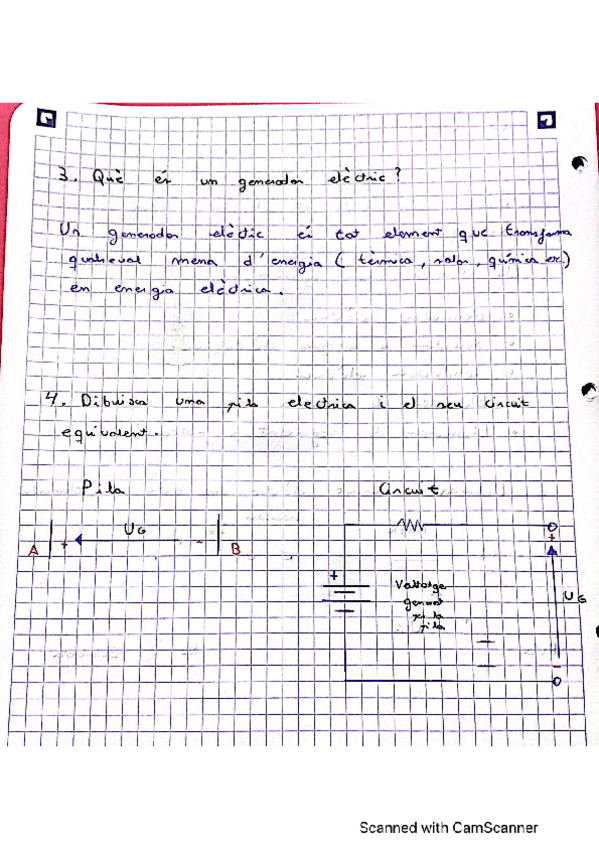 3. Què és un generador elèctric?
Un generador elèctric és tot element que transforma
qualsevol mena d'energia (tèrmica, solar, química etc)
en energia elèctrica.
4. Dibuixa una pila electrica i el seu circuit
equivalent.
Pila
Circuit
A + UG - B
+
Voltatge
generat
pila
+
UG
-
Scanned with CamScanner